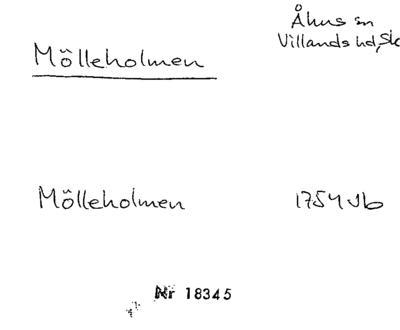 Mölleholmen
Åhus sn
Villands hd, Sk
Mölleholmen 1754 Jb
Nr 18345